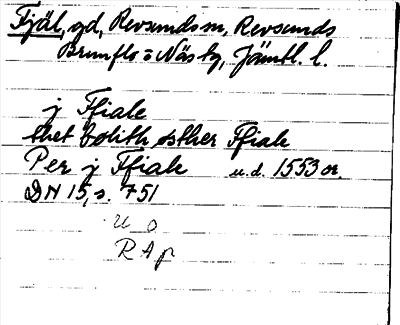 Fjäl, gd, Revsunds sn, Revsunds
Brunflo o Näs tg, Jämtl. l.
j Ffiale
thet bolith østher Ffiale
Per j Ffiale u.d. 1553 or.
DN 15, s. 751
u o
R A p